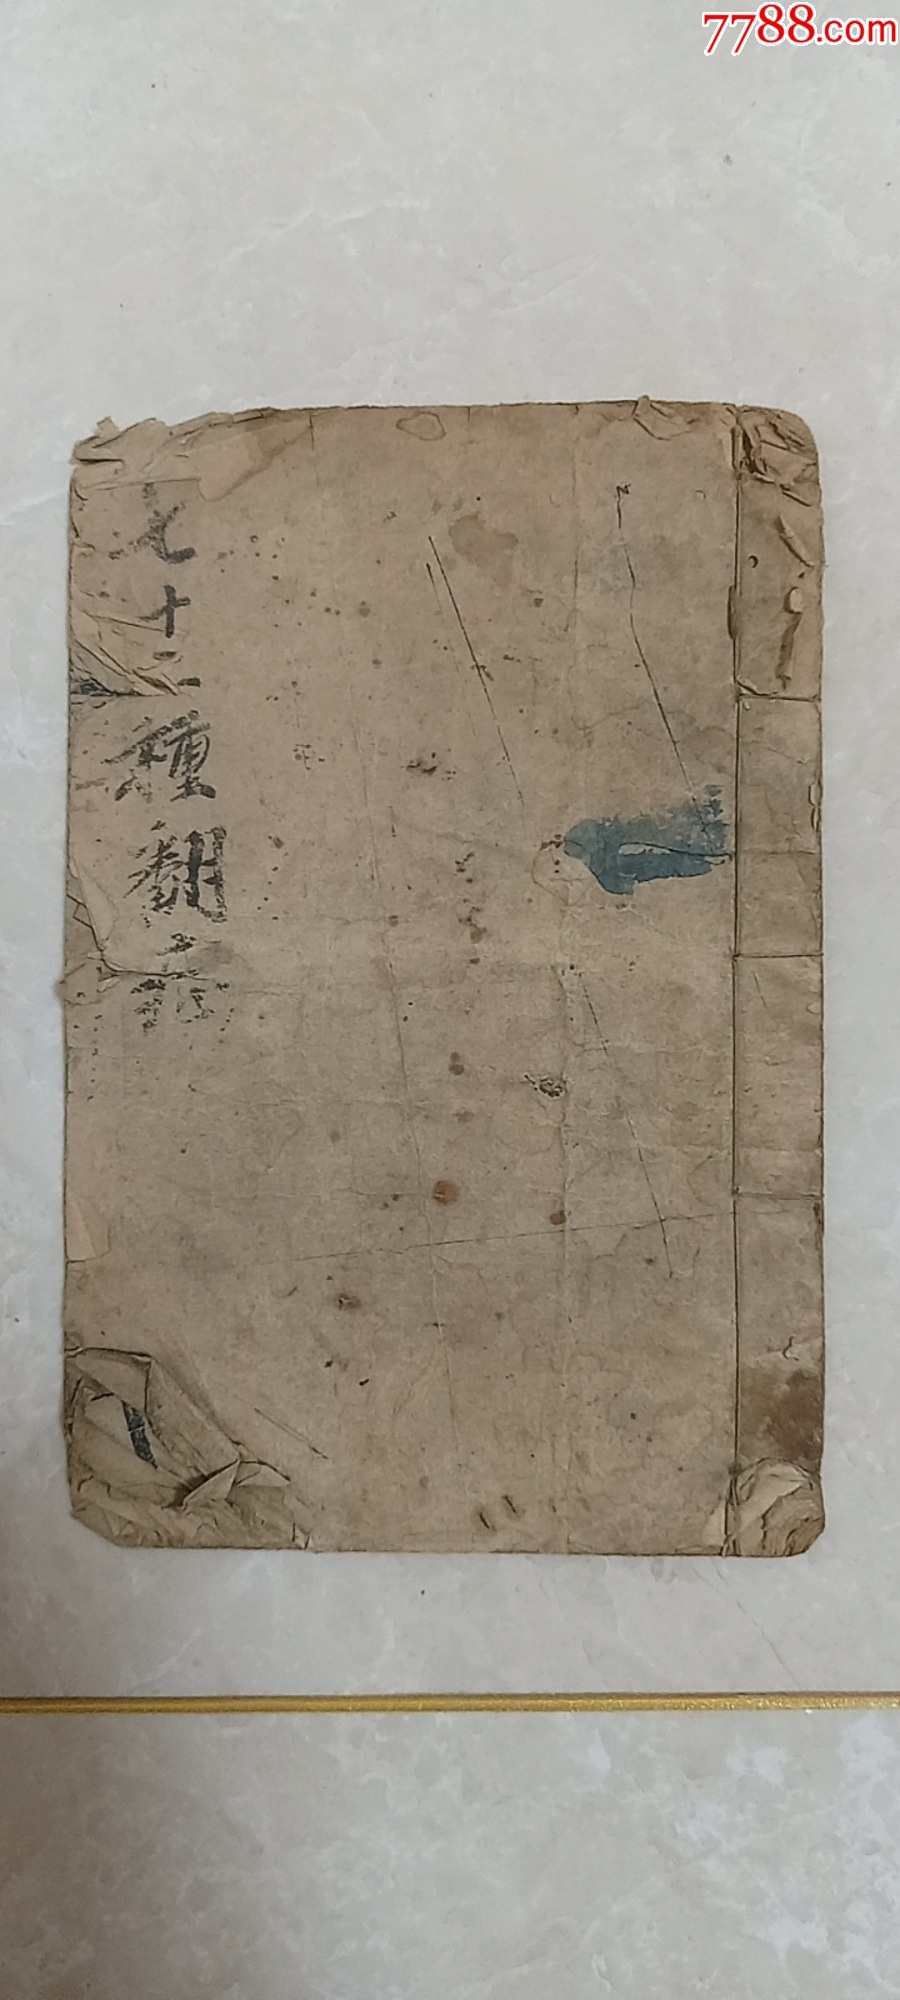 7788.com
七十二種翻